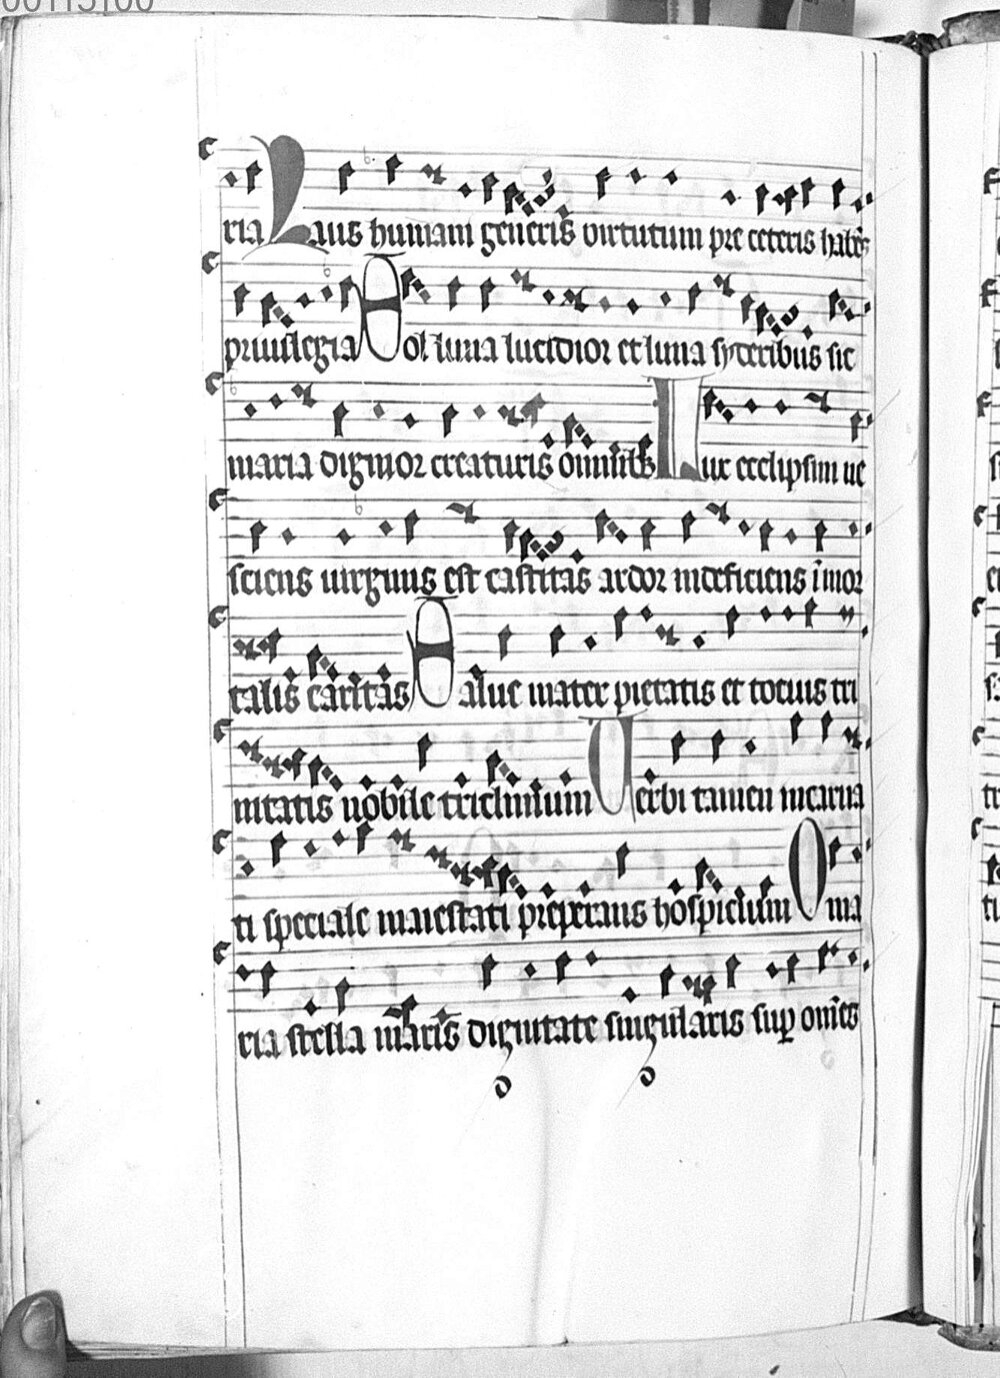 00113100
ria Laus humani generis virtutum pre ceteris habēs
priuilegia Sol luna lucidior et luna syderibus sic
maria dignior creaturis omnibus Lux ecclipsim ne
sciens uirginis est castitas ardor indeficiens īmor
talis caritas Salue mater pietatis et tocius tri
nitatis nobile triclinium Uerbi tamen incarna
ti speciale maiestati preperans hospicium O ma
ria stella maris dignitate singularis sup omēs